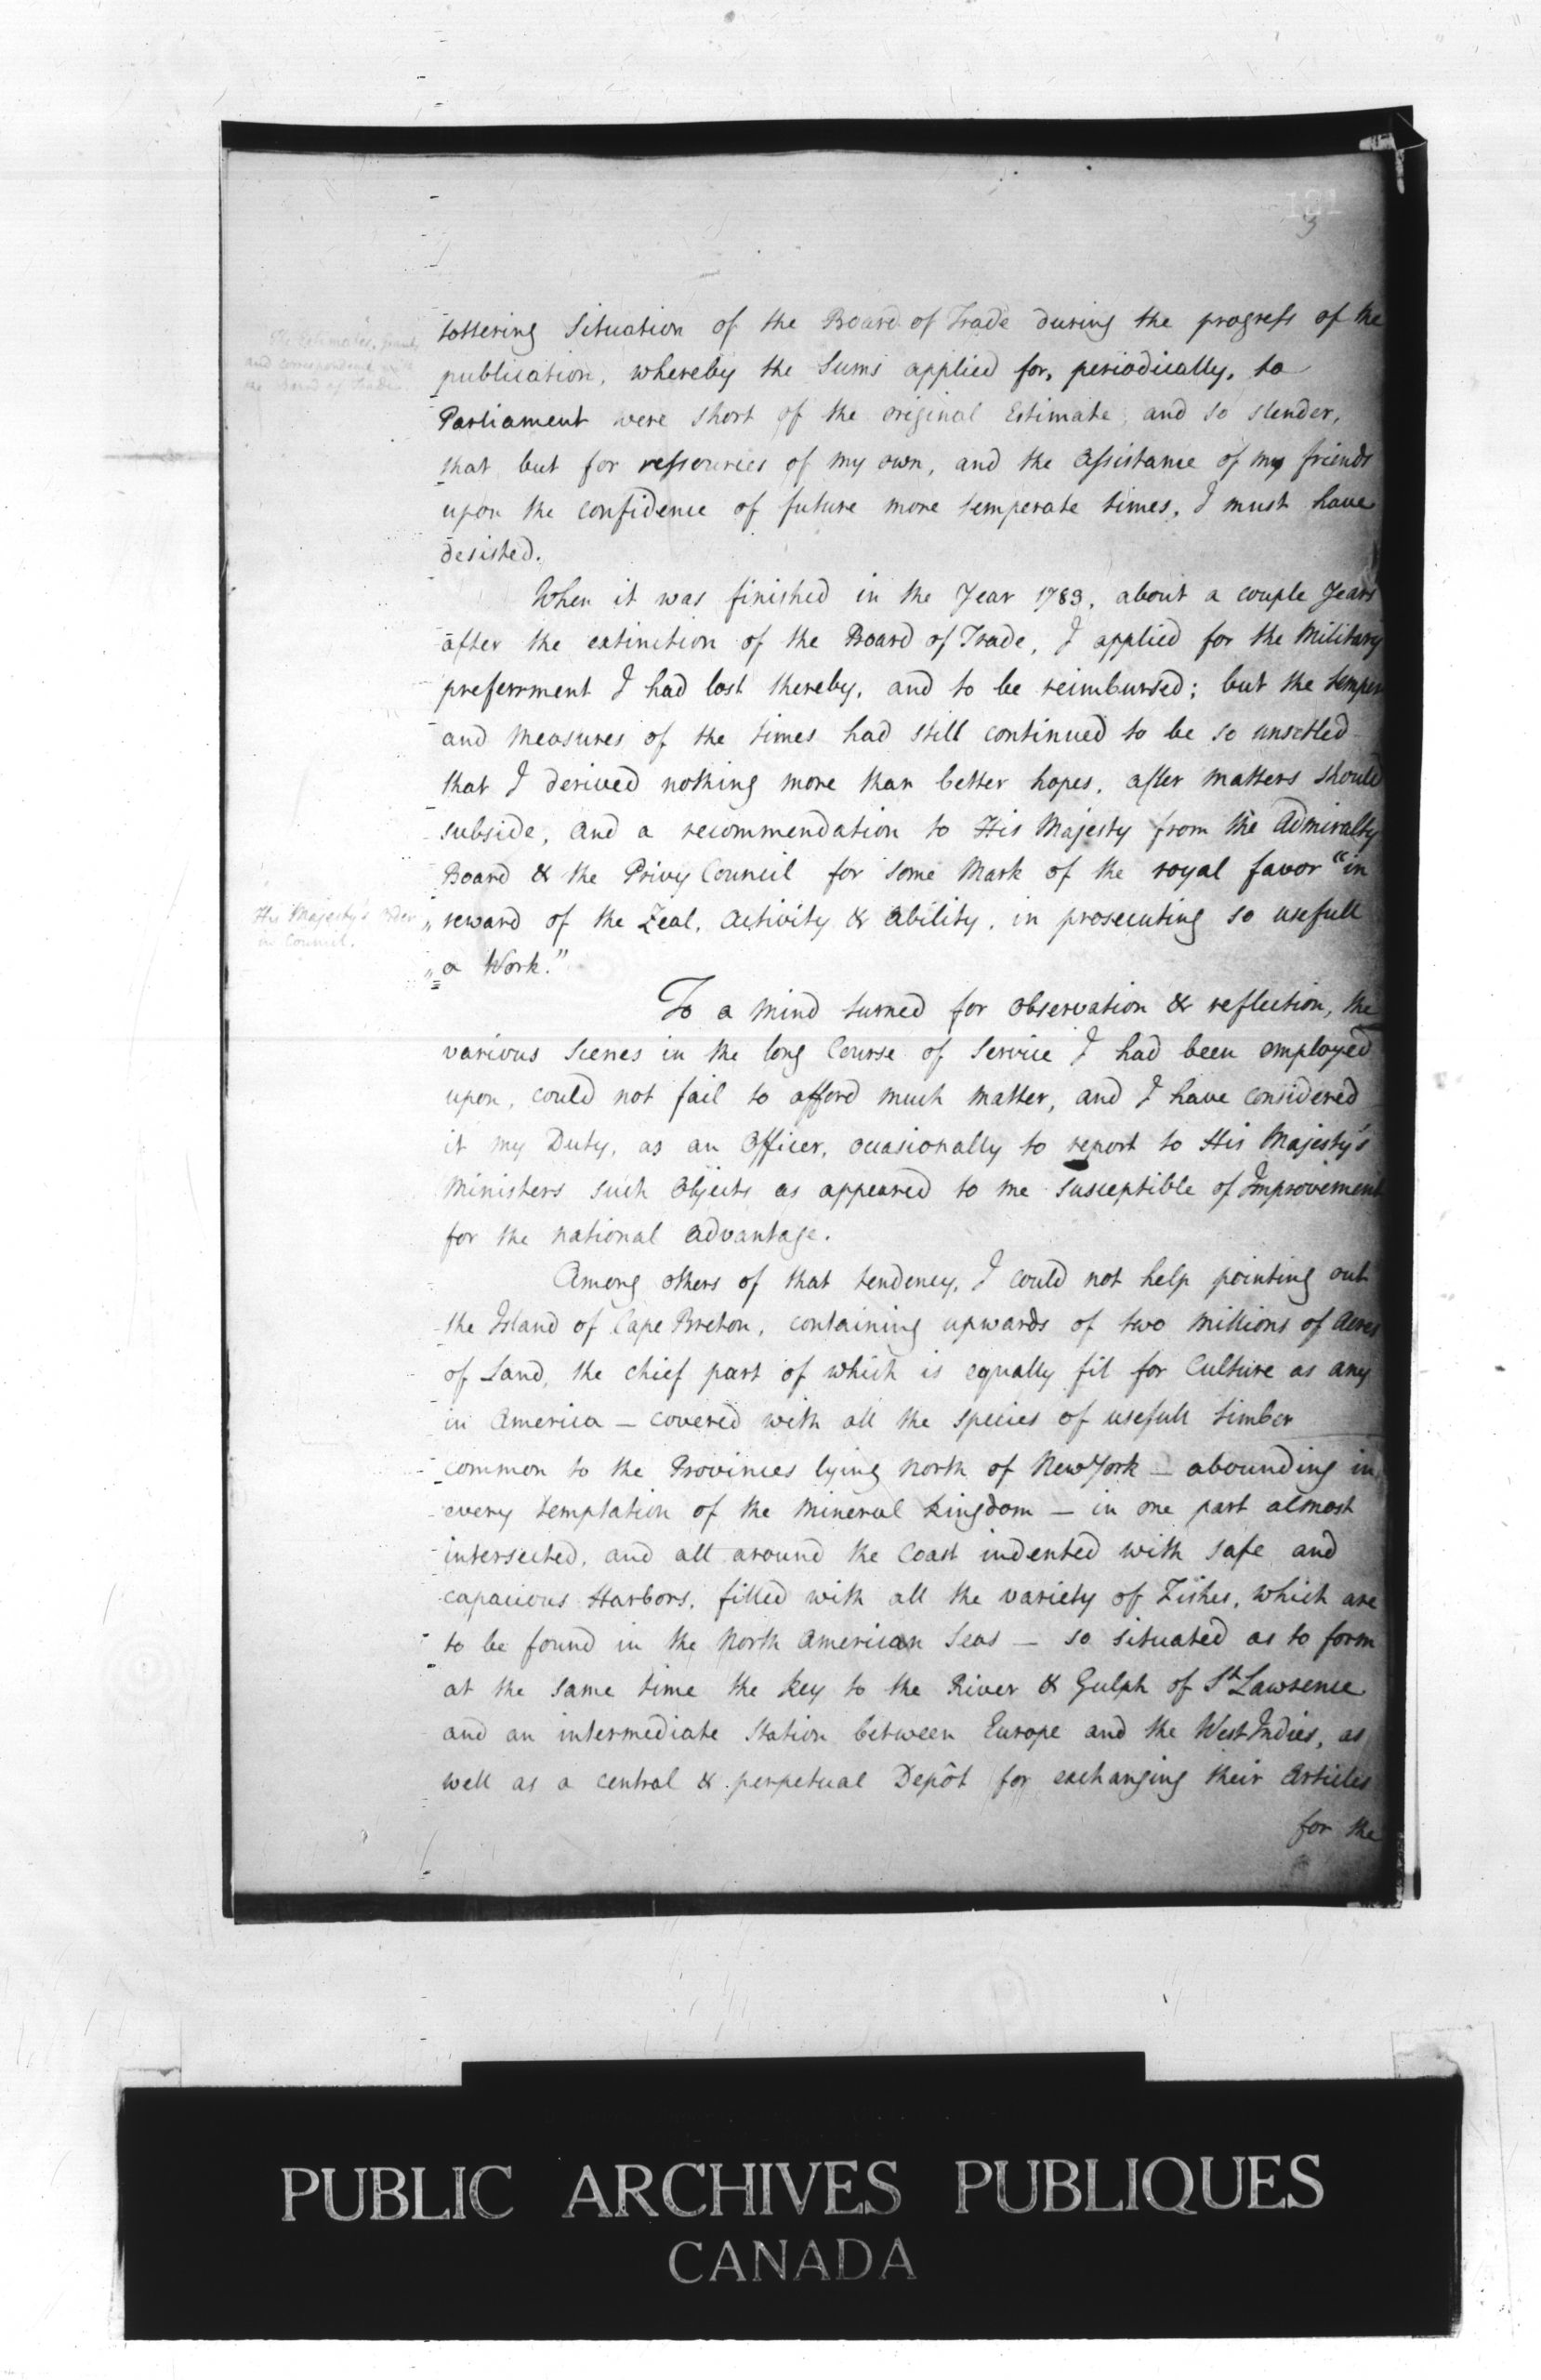 181
3
tottering Situation of the Board of Trade during the progress of the
The Estimates,
and correspondence with
the Board of Trade.
publication, whereby the Sums applied for, periodically, to
Parliament were short of the original Estimate, and so slender,
that but for ressources of my own, and the Assistance of my friends
upon the confidence of future more temperate times, I must have
desisted.
When it was finished in the Year 1783, about a couple Years
after the extinction of the Board of Trade, I applied for the Military
preferrment I had lost thereby, and to be reimbursed; but the temper
and Measures of the times had still continued to be so unsetled
that I derived nothing more than better hopes, after matters should
subside, and a recommendation to His Majesty from the Admiralty
Board & the Privy Council for some Mark of the royal favor "in
His Majesty's Order
in Council.
" reward of the Zeal, Activity & Ability, in prosecuting so usefull
" a Work."
To a Mind turned for observation & reflection, the
various Scenes in the long Course of Service I had been employed
upon, could not fail to afford much matter, and I have considered
it my Duty, as an Officer, occasionally to report to His Majesty's
Ministers such Objects as appeared to me susceptible of Improvement
for the national advantage.
Among others of that tendency, I could not help pointing out
the Island of Cape Breton, containing upwards of two Millions of Acres
of Land, the chief part of which is equally fit for Culture as any
in America — covered with all the species of usefull timber
common to the Provinces lying North of New York — abounding in
every temptation of the Mineral Kingdom — in one part almost
intersected, and all around the Coast indented with safe and
capacious Harbors, filled with all the variety of Fishes, which are
to be found in the North American Seas — so situated as to form
at the same time the Key to the River & Gulph of St Lawrence
and an intermediate Station between Europe and the West Indies, as
well as a central & perpetual Depôt for exchanging their Articles
for the
PUBLIC ARCHIVES PUBLIQUES
CANADA